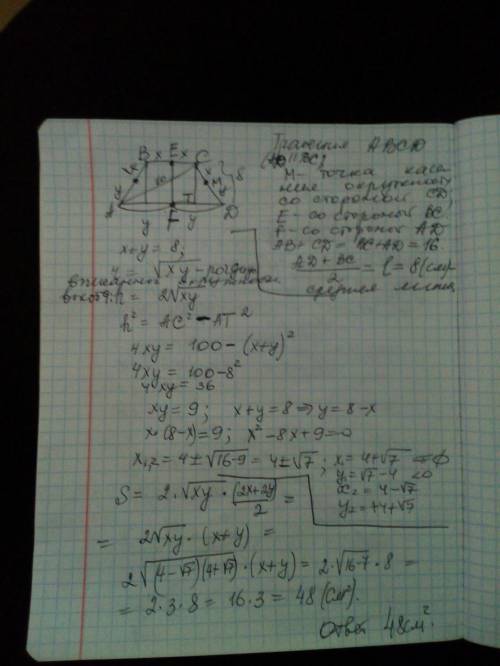 B x E x C
x x M 8
y y
A y F T y D
Трапеция ABCD
(AD||BC)
M- точка каса-
ния окружности
со стороной CD,
E - со стороной BC
F - со стороной AD
AB + CD = BC + AD = 16
AD + BC / 2 = l = 8 (см)-
средняя линия
x+y = 8;
r = √xy - радиус
вписанной окружности
высота: h = 2√xy
h² = AC² - AT²
4xy = 100 - (x+y)²
4xy = 100 - 8²
4xy = 36
xy = 9; x+y = 8 ⇒ y = 8-x
x·(8-x) = 9; x² - 8x + 9 = 0
x₁,₂ = 4 ± √16-9 = 4 ± √7; x₁ = 4+√7 ⇒ ∅
y₁ = √7 - 4 <0
x₂ = 4-√7
y₂ = +4+√7
S = 2·√xy · (2x+2y)/2 =
= 2√xy · (x+y) =
2√(4-√7)(4+√7) · (x+y) = 2·√16-7 · 8 =
= 2·3·8 = 16·3 = 48 (см²).
Ответ 48 см²